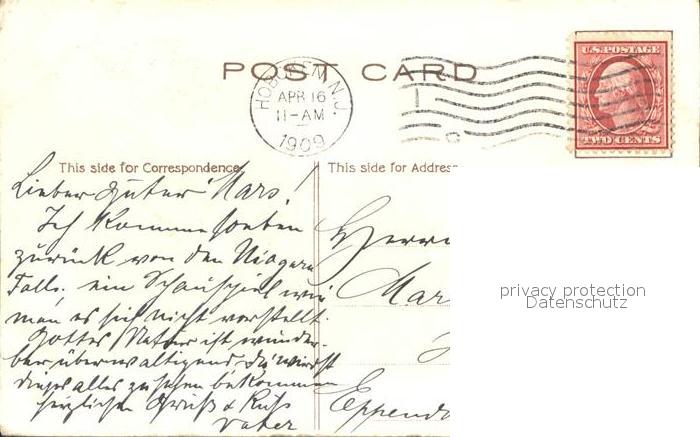 U.S. POSTAGE
POST CARD
HOBOKEN, N.J.
APR 16
11-AM
1909
TWO CENTS
This side for Correspondence
This side for Address
Lieber guter Mars!
Ich komme soeben
zurück von den Niagara
Falls. ein Schauspiel wie
man es sich nicht vorstellt.
Gottes Natur ist wunder-
bar überwältigend, Du wirst
dieses alles zu sehen bekommen
herzlichen Gruß & Kuß
Vater
Herrn
Mar
Eppendo
privacy protection
Datenschutz